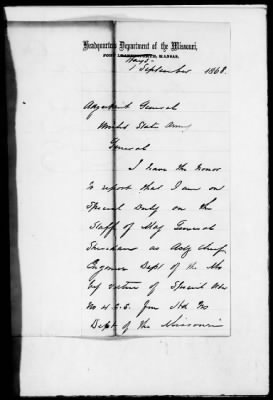 Headquarters Department of the Missouri,
FORT LEAVENWORTH, KANSAS,
Hays
1 September 1868.
Adjutant General
United States Army
General
I have the honor
to report that I am on
Special Duty on the
Staff of Maj General
Sheridan as Actg Chief
Engineer Dept of the Mo
by virtue of Special Order
No 4 C.S. from Hd Qrs
Dept of the Missouri